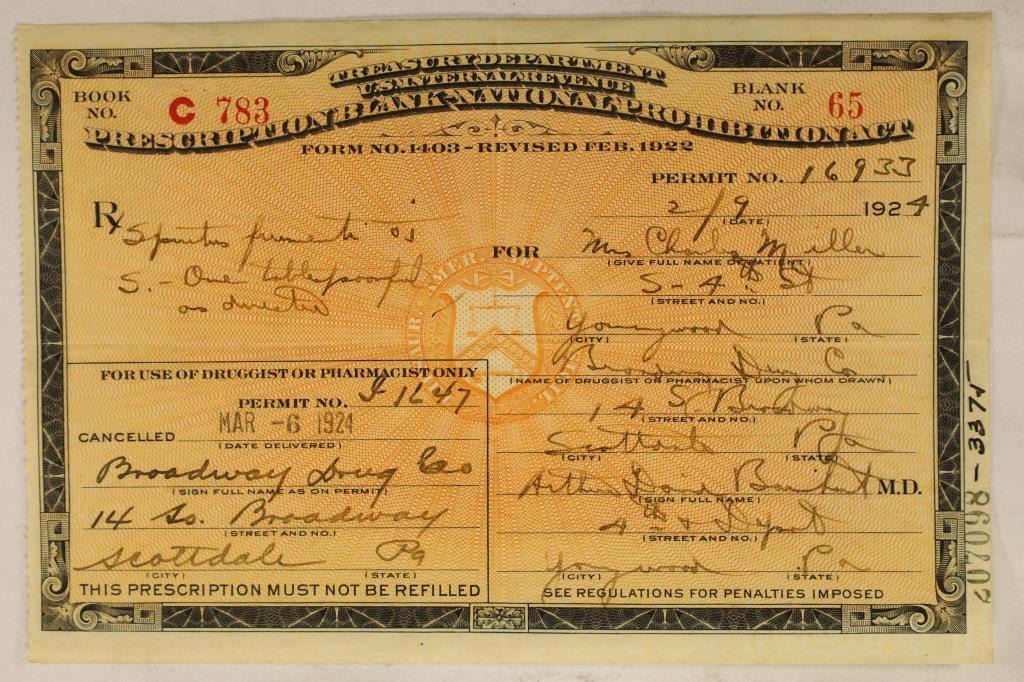 TREASURY DEPARTMENT
U.S. INTERNAL REVENUE
PRESCRIPTION BLANK-NATIONAL PROHIBITION ACT
FORM NO. 1403 - REVISED FEB. 1922
BOOK NO. C 783
BLANK NO. 65
PERMIT NO. 16933
2/9 1924
(DATE)
Rx
Spiritus frumenti
S. - One tablespoonful
as directed
FOR Mrs Charles Miller
(GIVE FULL NAME OF PATIENT)
S - 4th St
(STREET AND NO.)
Youngwood Pa
(CITY) (STATE)
Broadway Drug Co
(NAME OF DRUGGIST OR PHARMACIST UPON WHOM DRAWN)
14 S Broadway
(STREET AND NO.)
Scottdale Pa
(CITY) (STATE)
Arthur M.D.
(SIGN FULL NAME)
4th &
(STREET AND NO.)
Youngwood Pa
(CITY) (STATE)
SEE REGULATIONS FOR PENALTIES IMPOSED
FOR USE OF DRUGGIST OR PHARMACIST ONLY
PERMIT NO. I 1647
CANCELLED MAR -6 1924
(DATE DELIVERED)
Broadway Drug Co
(SIGN FULL NAME AS ON PERMIT)
14 So. Broadway
(STREET AND NO.)
Scottdale Pa
(CITY) (STATE)
THIS PRESCRIPTION MUST NOT BE REFILLED
207098-3375